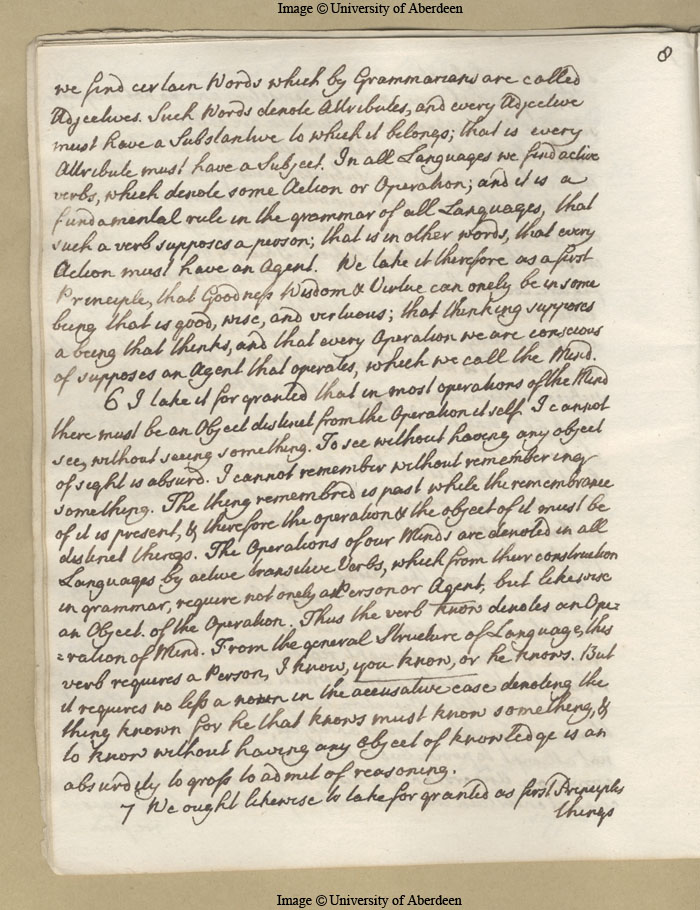 Image © University of Aberdeen
8
we find certain Words which by Grammarians are called
Adjectives. Such Words denote Attributes, and every Adjective
must have a Substantive to which it belongs; that is every
Attribute must have a Subject. In all Languages we find active
verbs, which denote some Action or Operation; and it is a
fundamental rule in the grammar of all Languages, that
such a verb supposes a person; that is in other words, that every
Action must have an Agent. We take it therefore as a first
Principle, that Goodness Wisdom & Virtue can onely be in some
being that is good, wise, and vertuous; that thinking supposes
a being that thinks, and that every Operation we are conscious
of supposes an Agent that operates, which we call the Mind.
6 I take it for granted that in most operations of the Mind
there must be an Object distinct from the Operation itself. I cannot
see, without seeing something. To see without having any object
of sight is absurd. I cannot remember without remembering
something. The thing remembred is past while the remembrance
of it is present, & therefore the operation & the object of it must be
distinct things. The Operations of our Minds are denoted in all
Languages by active transitive Verbs, which from their construction
in grammar, require not onely a Person or Agent, but likewise
an Object of the Operation. Thus the verb know denotes an Ope=
=ration of Mind. From the general Structure of Language, this
verb requires a Person, I know, you know, or he knows. But
it requires no less a noun in the accusative case denoting the
thing known for he that knows must know something, &
to know without having any Object of knowledge is an
absurdity to gross to admit of reasoning.
7 We ought likewise to take for granted as first Principles
things
Image © University of Aberdeen